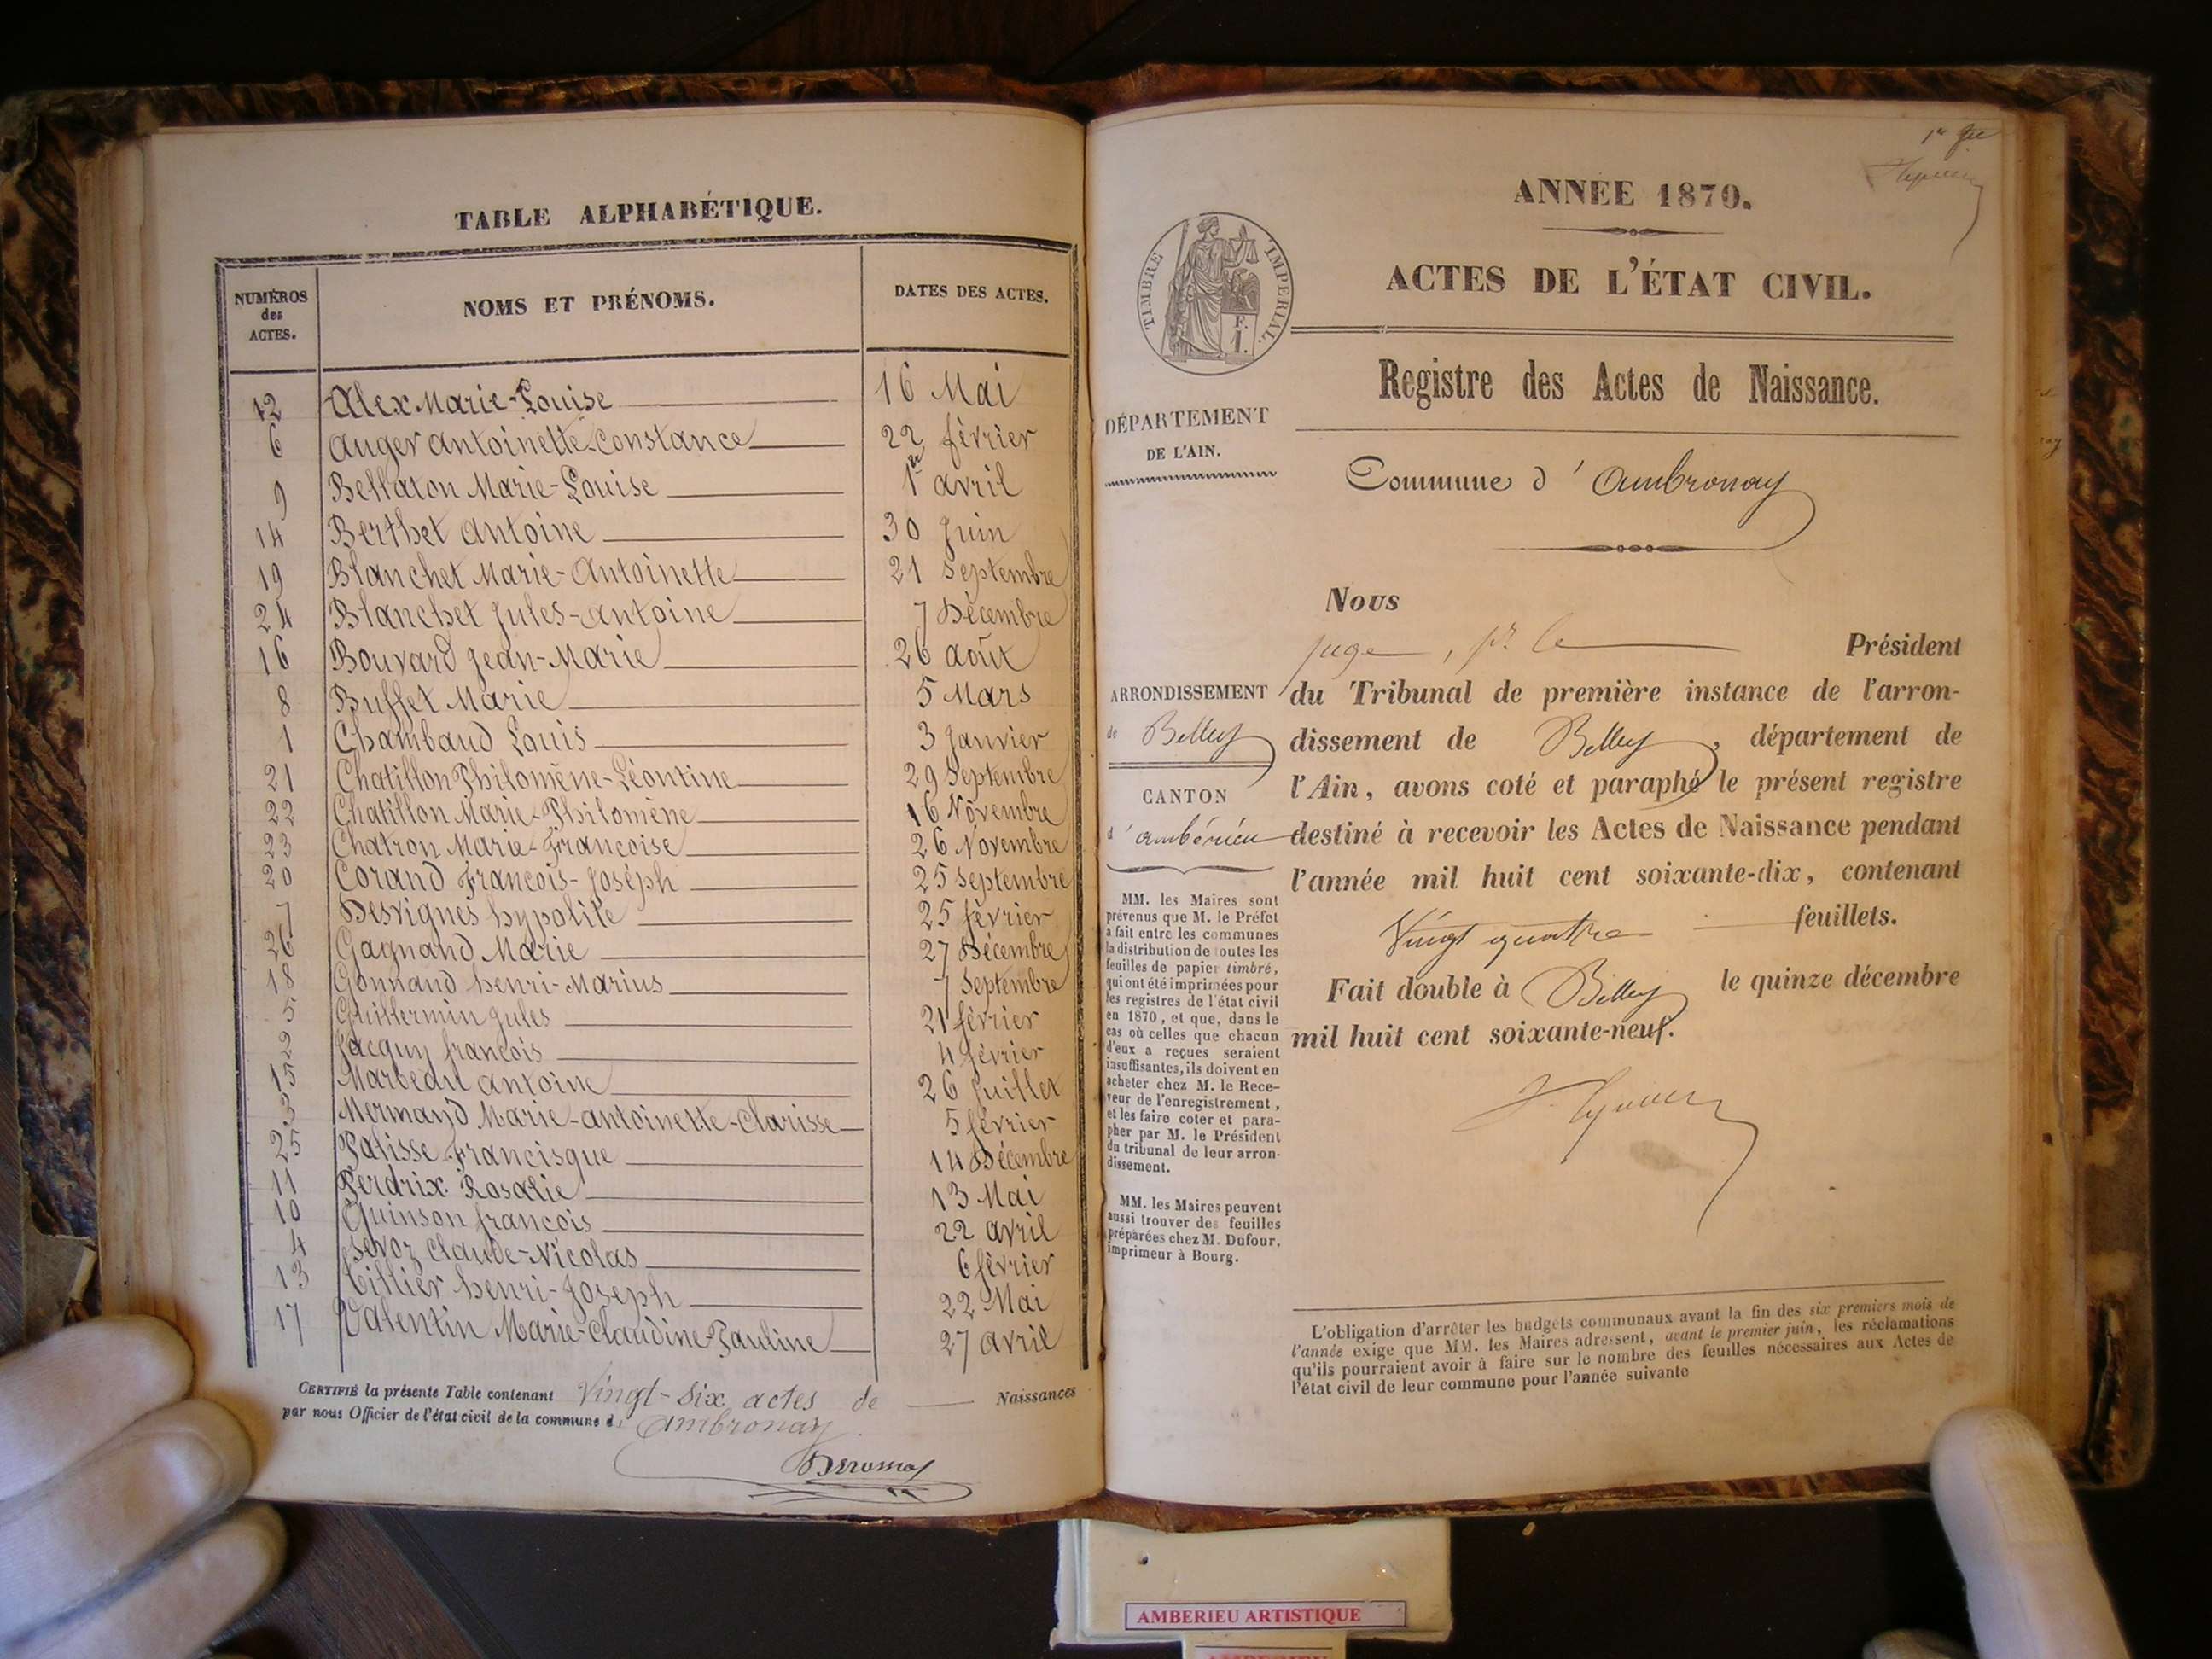 TABLE ALPHABÉTIQUE.
NUMÉROS des ACTES. NOMS ET PRÉNOMS. DATES DES ACTES.
12 Alex Marie-Louise 16 Mai
6 Auger Antoinette-Constance 22 février
9 Bellaton Marie-Louise 1er avril
14 Berthet Antoine 30 Juin
19 Blanchet Marie-Antoinette 21 Septembre
24 Blanchet Jules-Antoine 7 Décembre
16 Bouvard Jean-Marie 26 août
8 Buffet Marie 5 Mars
1 Chambaud Louis 3 Janvier
21 Chatillon Philomène-Léontine 29 Septembre
22 Chatillon Marie-Philomène 16 Novembre
23 Chatron Marie-Francoise 26 Novembre
20 Corand Francois-Joseph 25 Septembre
7 Desvignes hypolite 25 février
26 Gagnand Marie 27 Décembre
18 Gonnand henri-Marius 7 Septembre
5 Guillermin Jules 21 février
2 Jacquy francois 4 février
15 Marbeau Antoine 26 Juillet
3 Mermand Marie-antoinette-Clarisse 5 février
25 Palisse Francisque 14 Décembre
11 Perdrix Rosalie 13 Mai
10 Quinson francois 22 avril
4 Sevoz Claude-Nicolas 6 février
13 Tillier henri-Joseph 22 Mai
17 Valentin Marie-Claudine-Pauline 27 avril
CERTIFIÉ la présente Table contenant Vingt-six actes de Naissances
par nous Officier de l'état civil de la commune d' ambronay
1er
ANNÉE 1870.
TIMBRE IMPÉRIAL.
F.
1.
ACTES DE L'ÉTAT CIVIL.
Registre des Actes de Naissance.
DÉPARTEMENT
DE L'AIN.
Commune d'Ambronay
Nous
juge, pr. le Président
du Tribunal de première instance de l'arron-
dissement de Belley, département de
l'Ain, avons coté et paraphé le présent registre
destiné à recevoir les Actes de Naissance pendant
l'année mil huit cent soixante-dix, contenant
Vingt quatre feuillets.
Fait double à Belley le quinze décembre
mil huit cent soixante-neuf.
ARRONDISSEMENT
de Belley
CANTON
d'ambérieu
MM. les Maires sont
prévenus que M. le Préfet
a fait entre les communes
la distribution de toutes les
feuilles de papier timbré,
qui ont été imprimées pour
les registres de l'état civil
en 1870, et que, dans le
cas où celles que chacun
d'eux a reçues seraient
insuffisantes, ils doivent en
acheter chez M. le Rece-
veur de l'enregistrement,
et les faire coter et para-
pher par M. le Président
du tribunal de leur arron-
dissement.
MM. les Maires peuvent
aussi trouver des feuilles
préparées chez M. Dufour,
imprimeur à Bourg.
L'obligation d'arrêter les budgets communaux avant la fin des six premiers mois de
l'année exige que MM. les Maires adressent, avant le premier juin, les réclamations
qu'ils pourraient avoir à faire sur le nombre des feuilles nécessaires aux Actes de
l'état civil de leur commune pour l'année suivante
AMBERIEU ARTISTIQUE